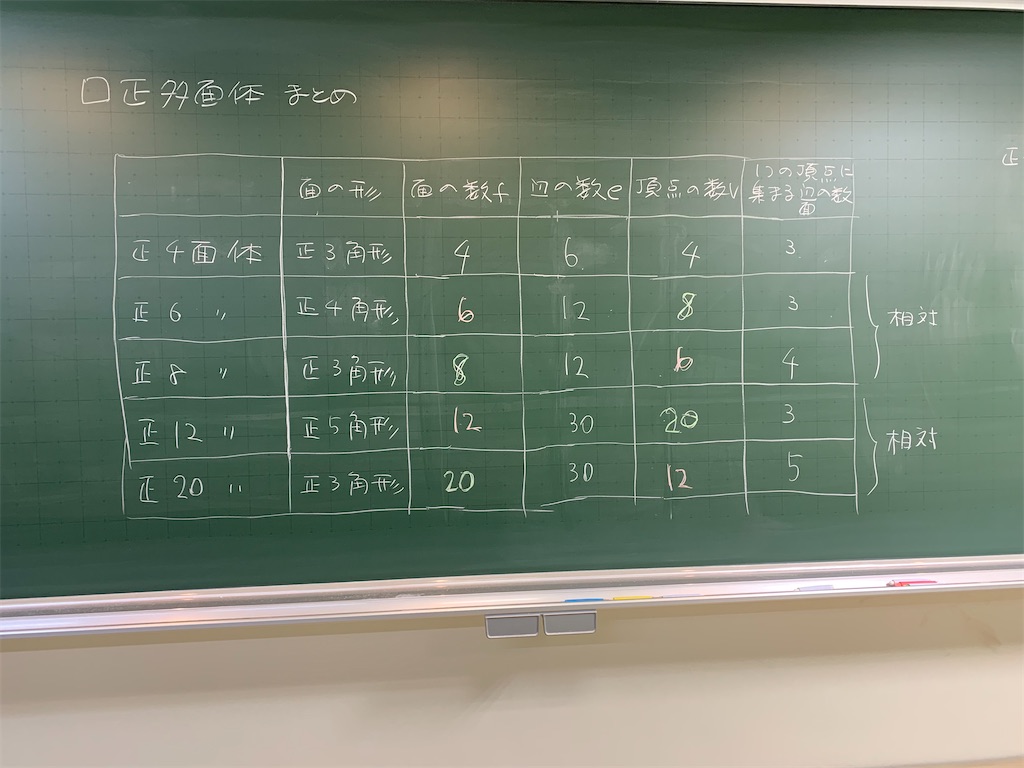 □正多面体 まとめ
正
面の形 面の数f 辺の数e 頂点の数V 1つの頂点に
集まる辺の数
面
正4面体 正3角形 4 6 4 3
正6 〃 正4角形 6 12 8 3
相対
正8 〃 正3角形 8 12 6 4
正12 〃 正5角形 12 30 20 3
相対
正20 〃 正3角形 20 30 12 5